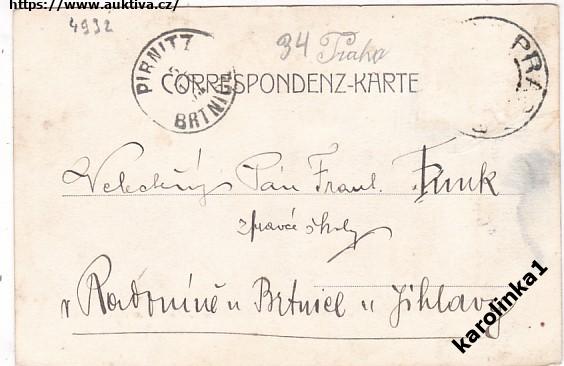 https://www.auktiva.cz/
4932
34 Praha
PIRNITZ
BRTNICE
PRA
CORRESPONDENZ-KARTE
Velectěný Pán Frant. Funk
zpravce školy
v Radoníně u Brtnice u Jihlavy
karolinka1